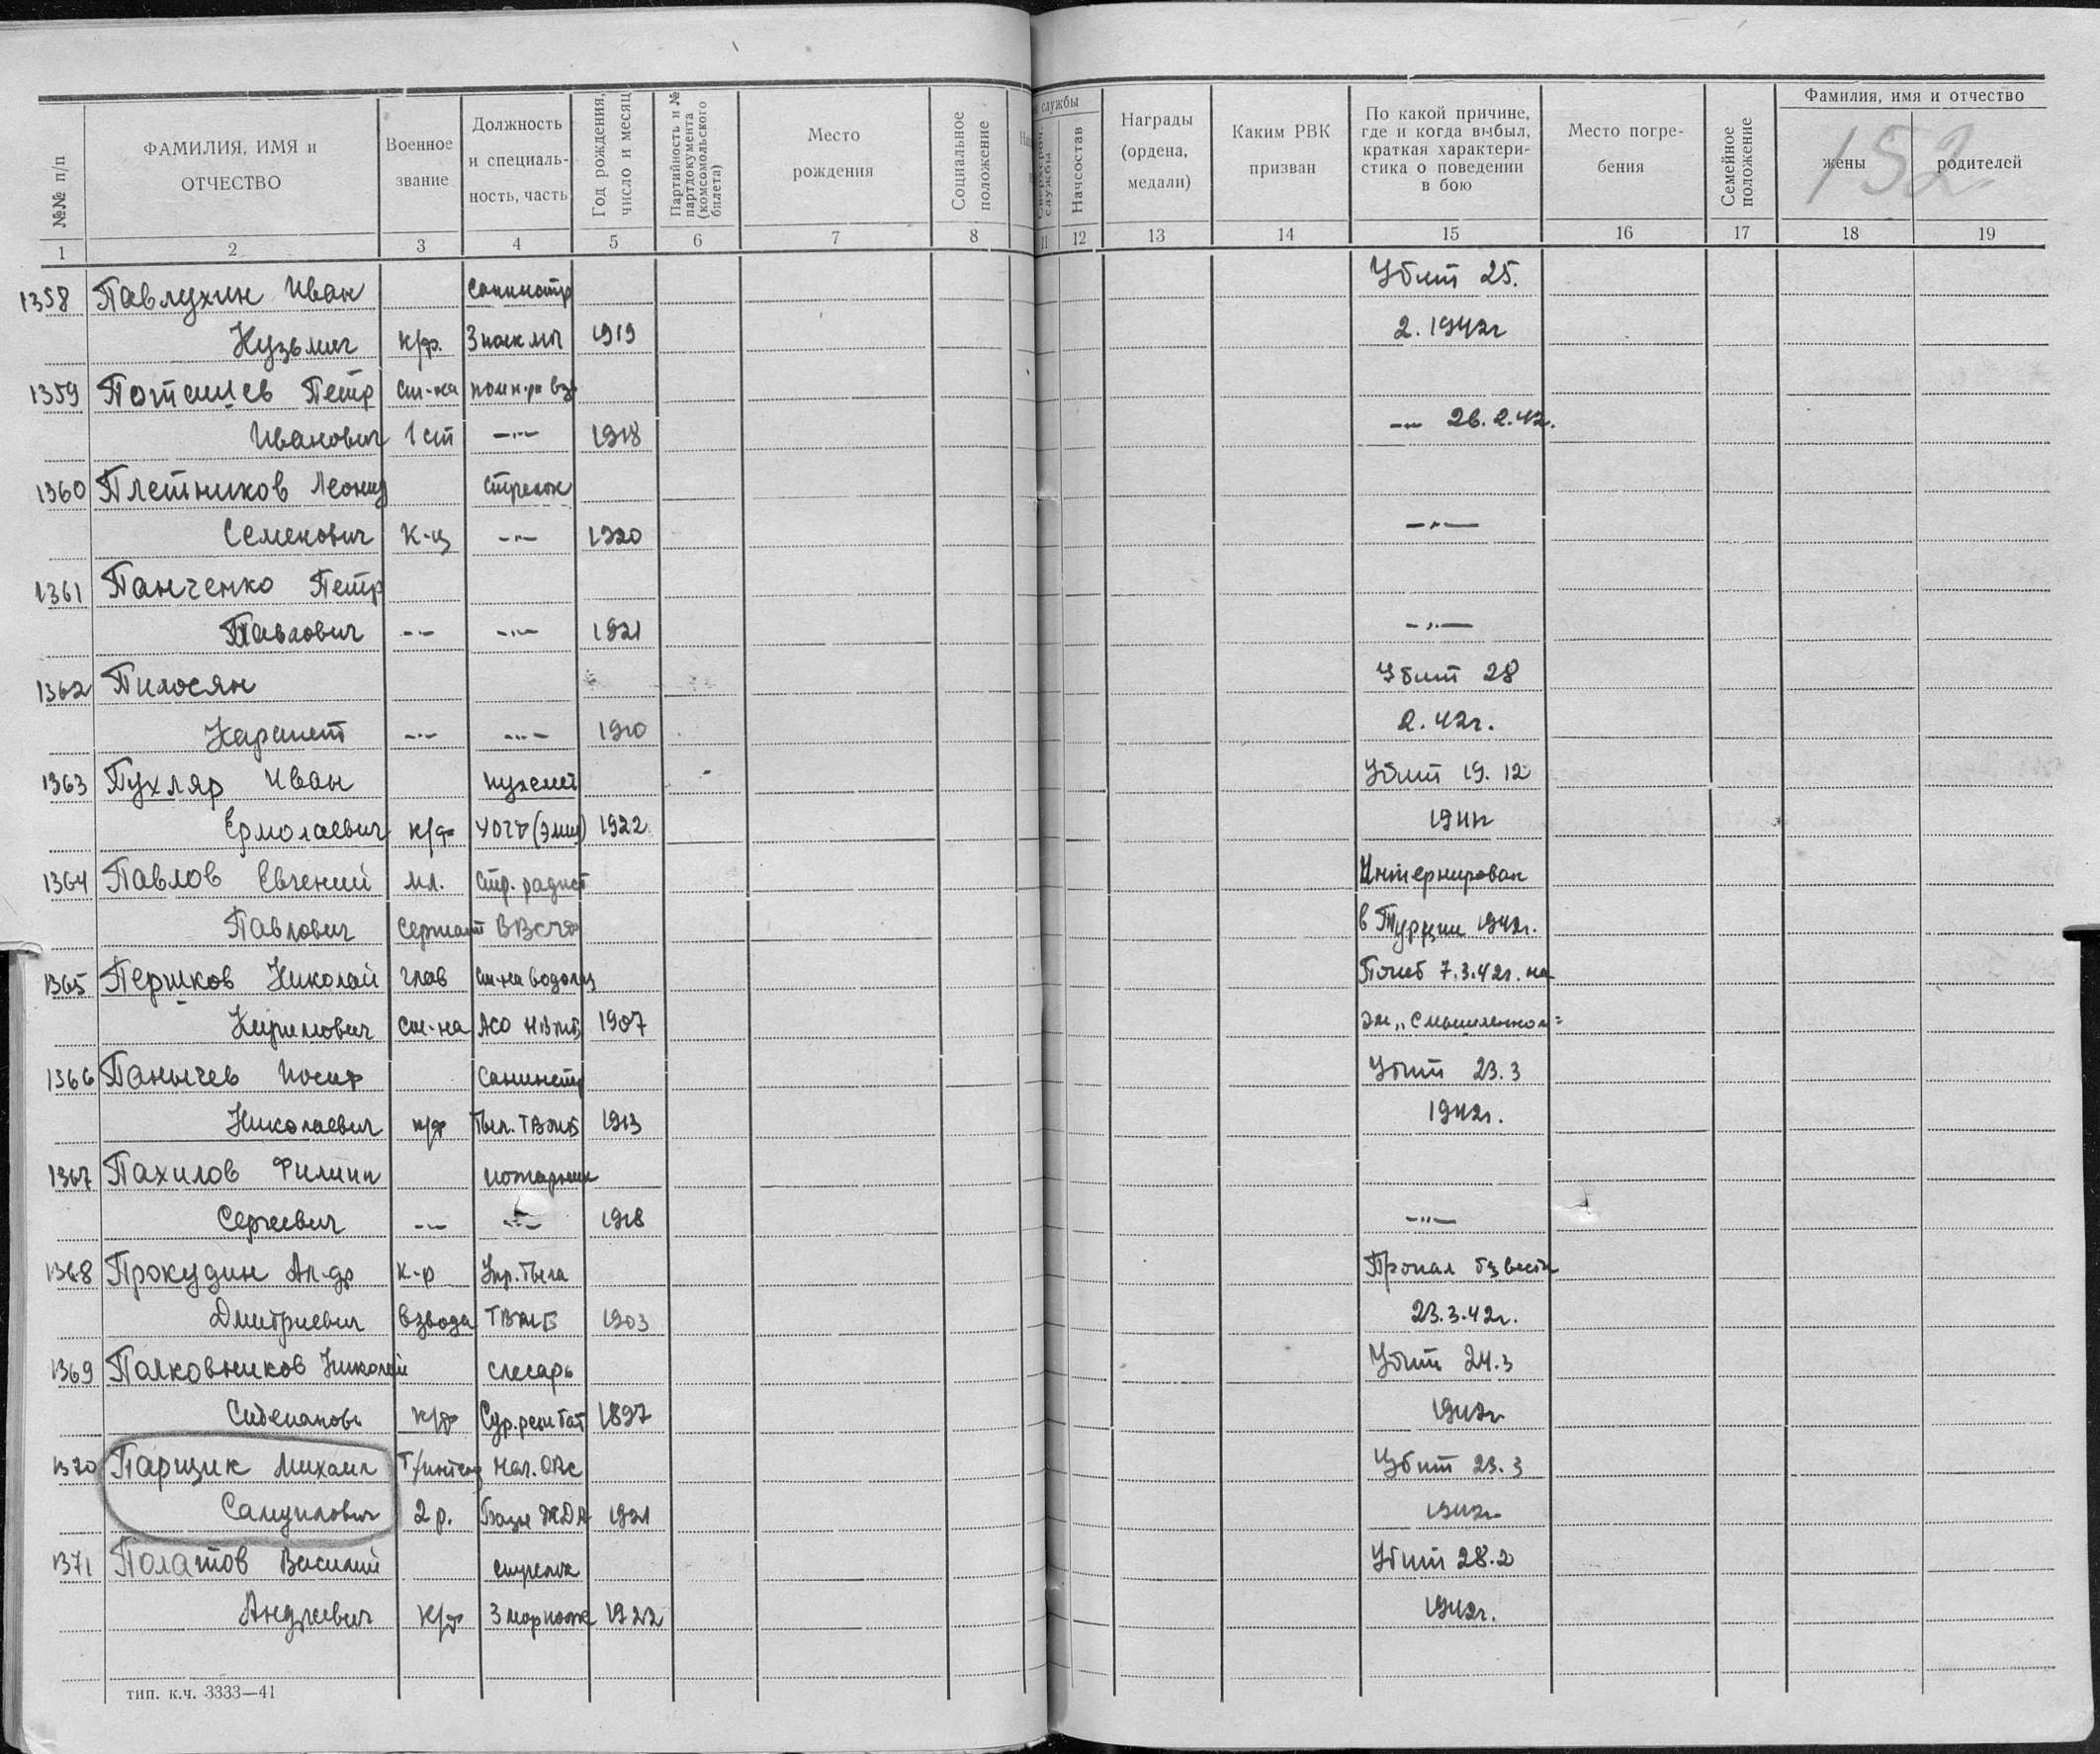 152
№№ п/п | ФАМИЛИЯ, ИМЯ и ОТЧЕСТВО | Военное звание | Должность и специаль-ность, часть | Год рождения, число и месяц | Партийность и № партдокумента (комсомольского билета) | Место рождения | Социальное положение | службы | Начсостав | Награды (ордена, медали) | Каким РВК призван | По какой причине, где и когда выбыл, краткая характери-стика о поведении в бою | Место погре-бения | Семейное положение | Фамилия, имя и отчество жены | родителей
1 2 3 4 5 6 7 8 11 12 13 14 15 16 17 18 19
1358 Павлухин Иван Убит 25.
Кузьмич к/ф. 3 полк МП 1919 2. 1942г
1359 Петр ст-на
Иванович 1 ст —"— 1918 —"— 26.2.42г.
1360 Плетников Леонид стрелок
Семенович к-ц —"— 1920 —"—
1361 Панченко Петр
Павлович —"— —"— 1921 —"—
1362 Пилосян Убит 28
Карапет —"— —"— 1910 2. 42г.
1363 Пухляр Иван Убит 19. 12
Ермолаевич к/ф 1922 1941г
1364 Павлов Евгений мл. стр. радист Интернирован
Павлович сержант ВВСЧФ в Турции 1942г.
1365 Першков Николай глав ст-на водолаз Погиб 7.3.42г. на
Кирилович ст-на АСО 1907 эм „Смышленном"
1366 Панычев Иосиф Убит 23.3
Николаевич к/ф Тыл. ТВМБ 1913 1942г.
1367 Пахилов Филипп пожарник
Сергеевич —"— —"— 1918 —"—
1368 Прокудин Ал-др к-р Упр. Тыла Пропал без вести
Дмитриевич взвода ТВМБ 1903 23.3.42г.
1369 Полковников Николай слесарь Убит 24.3
к/ф 1897 1942г
1370 Парщик Михаил Т/интенд Нач. Убит 23.3
Самуилович 2 р. 1921 1942г
1371 Полатов Василий стрелок Убит 28.2
Андреевич к/ф 1922 1942г.
тип. к.ч. 3333—41